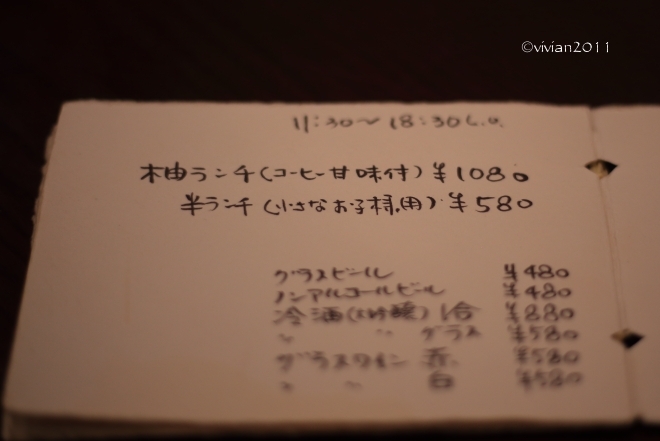 ©vivian2011
11:30～18:30 L.O.
柚ランチ(コーヒー甘味付) ¥1080
半ランチ(小さなお子様用) ¥580
グラスビール ¥480
ノンアルコールビール ¥480
冷酒(大吟醸) 1合 ¥880
〃 〃 グラス ¥580
グラスワイン 赤 ¥580
〃 〃 白 ¥580